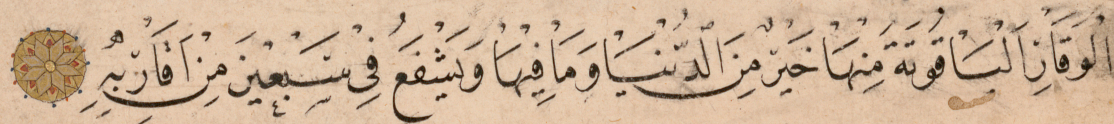 الْوَقَارِ اَلْيَاقُوتَةُ مِنْهَا خَيْرٌ مِنَ الدُّنْيَا وَمَا فِيْهَا وَيَشْفَعُ فِيْ سَبْعِيْنَ مِنْ اَقَارِبِهِ